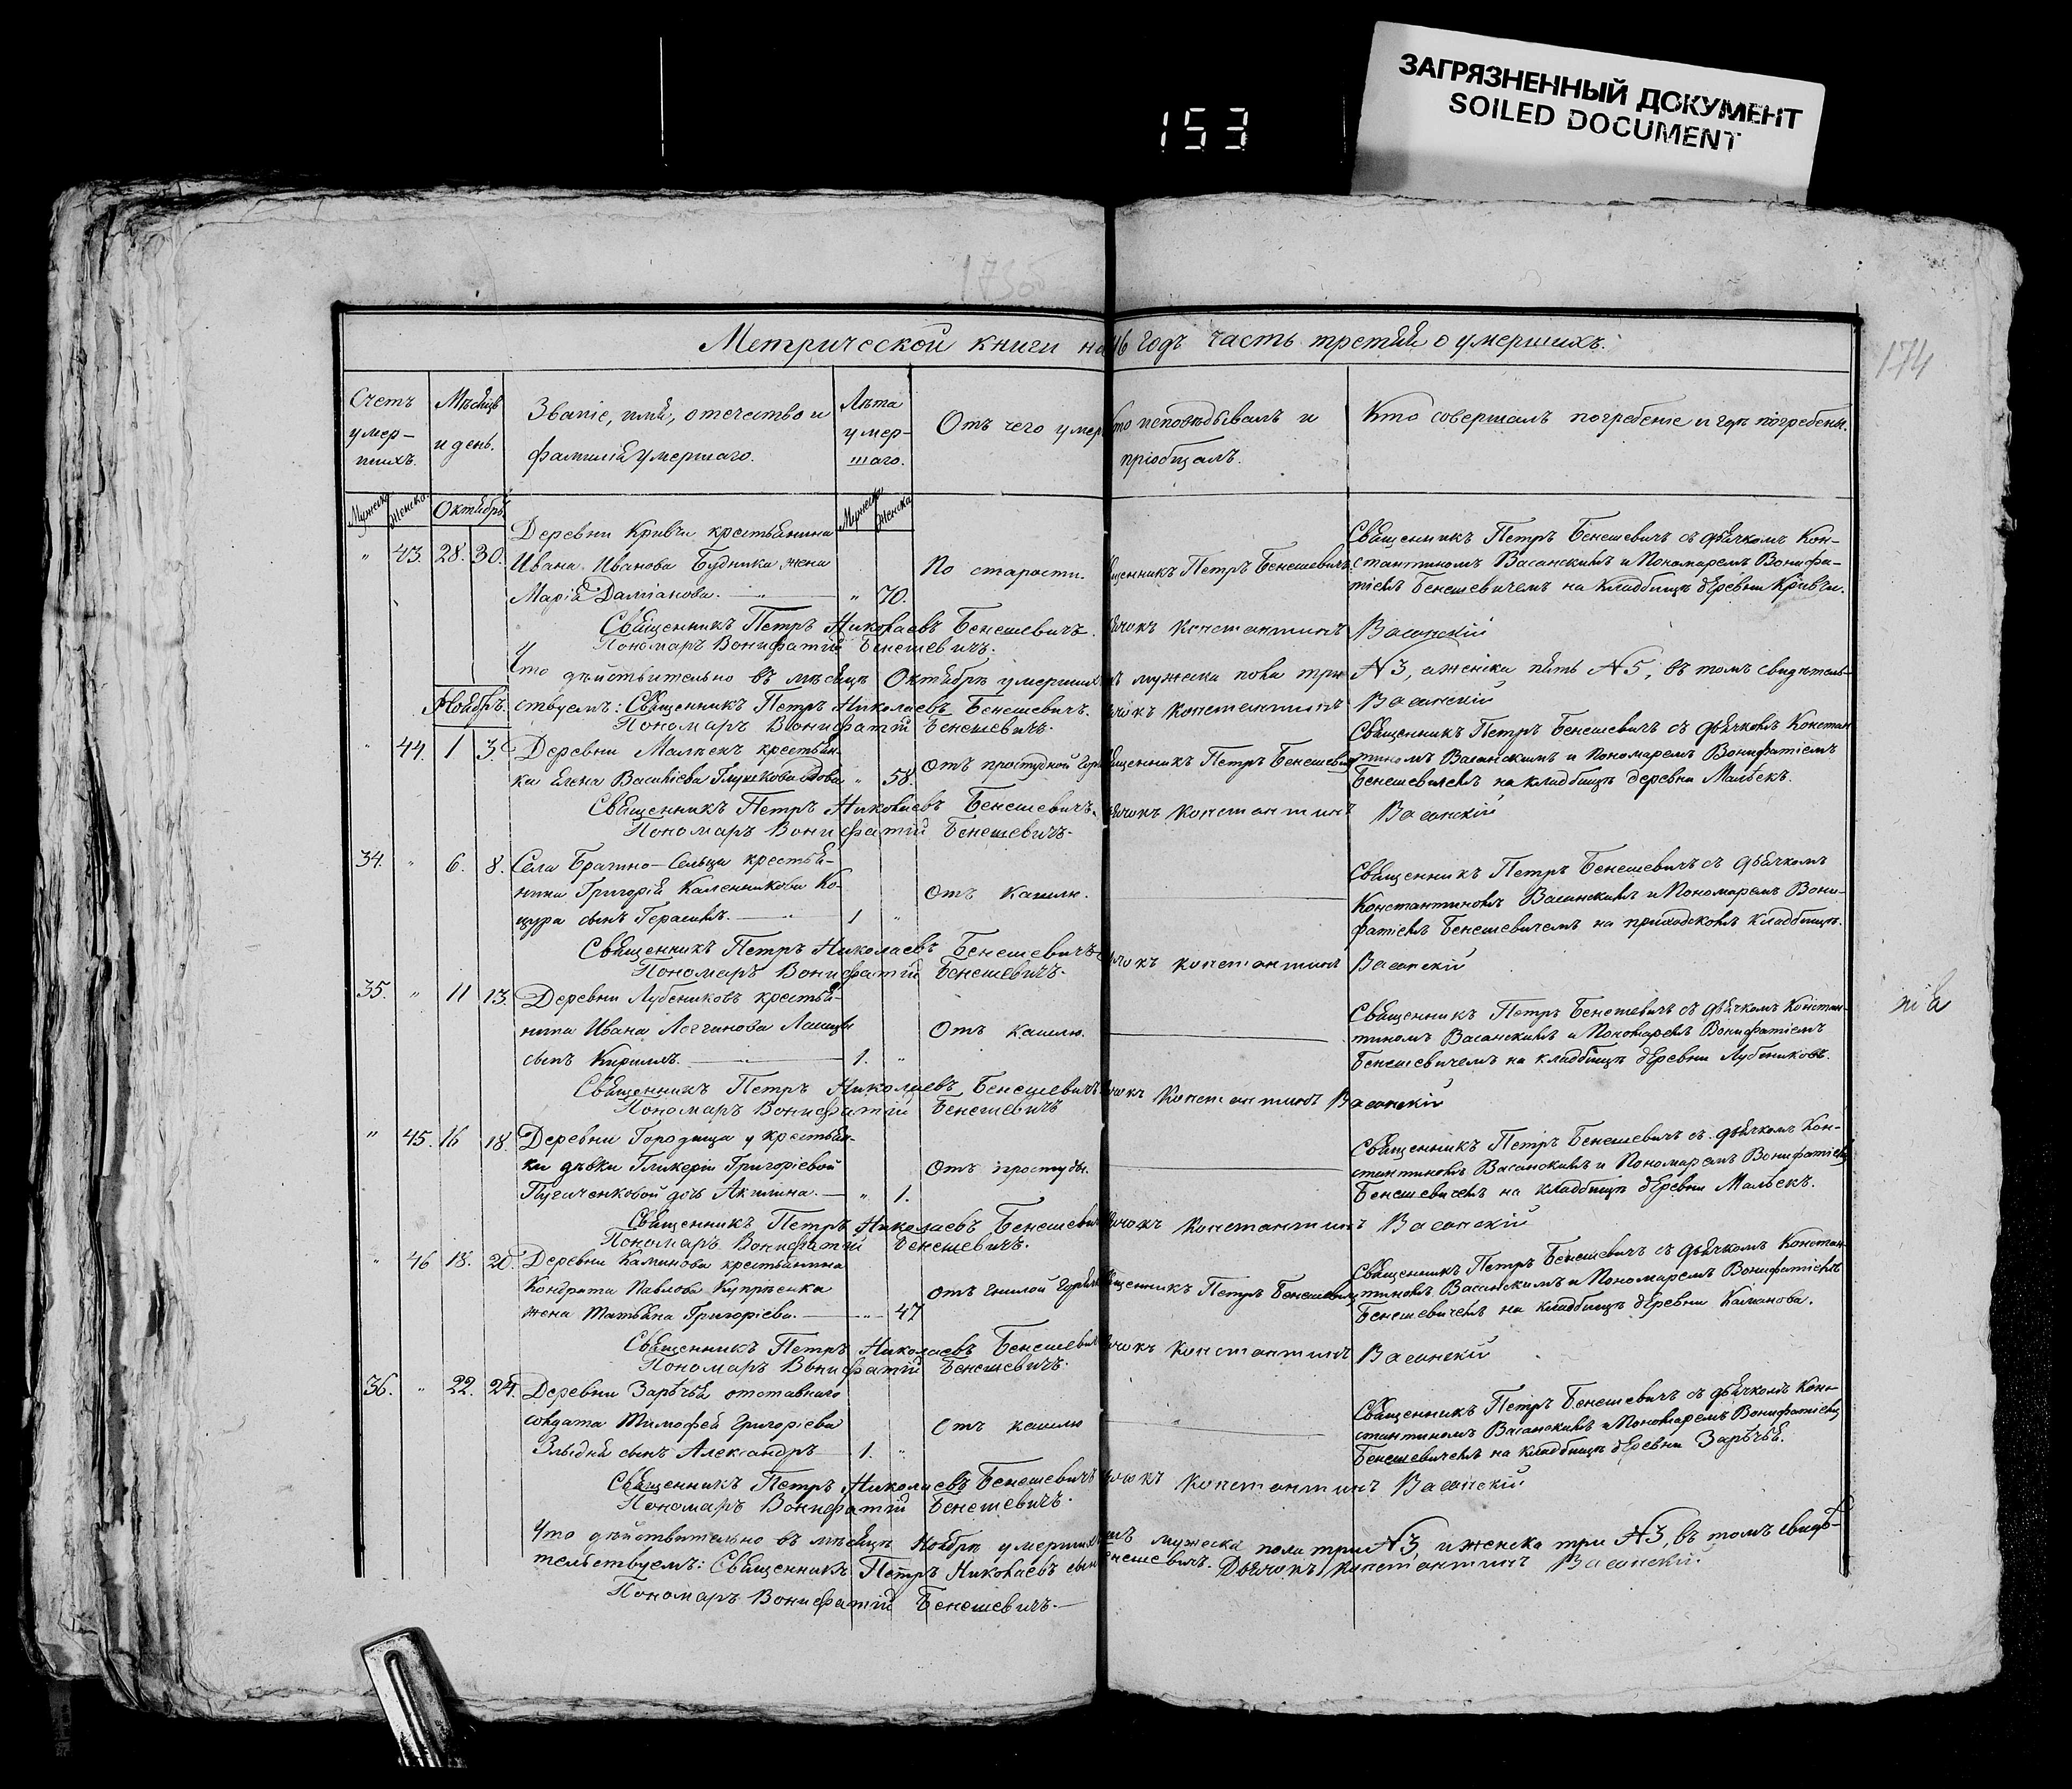 ЗАГРЯЗНЕННЫЙ ДОКУМЕНТ
SOILED DOCUMENT
153
174
Метрической книги на 46 годъ часть третія о умершихъ.
Счетъ умер-шихъ.
Мѣсяцъ и день.
Званіе, имя, отечество и фамилія умершаго.
Лѣта умер-шаго.
Отъ чего умер
то исповѣдывалъ и пріобщалъ.
Кто совершалъ погребеніе и гдѣ погребены.
Мужеска Женска
Октябрь
Мужеска Женска
" 43. 28. 30.
Деревни Кривчи крестьянина
Ивана Иванова Будника жена
Марія Даміанова. " 70.
По старости.
щенникъ Петръ Бенешевичъ.
Священникъ Петръ Бенешевичъ съ дьячкомъ Кон-
стантиномъ Васанскимъ и Пономаремъ Вонифа-
тіемъ Бенешевичемъ на кладбищѣ деревни Кривчи.
Священникъ Петръ Николаевъ Бенешевичъ. ячокъ Константинъ Васанскій
Пономарь Вонифатій Бенешевичъ.
Что дѣйствительно въ мѣсяцѣ Октябрѣ умерших мужеска пола три №3, а женска пять №5, въ томъ свидѣтель-
ствуемъ: Священникъ Петръ Николаевъ Бенешевичъ. ячокъ Константинъ Васанскій
Пономарь Вонифатій Бенешевичъ.
Ноябрь.
" 44. 1 3.
Деревни Малѣекъ крестьян-
ка Елена Васильева Глушкова вдова " 58.
Отъ простудной Горя
щенникъ Петръ Бенешевич
Священникъ Петръ Бенешевичъ съ дьячкомъ Констан
тиномъ Васанскимъ и Пономаремъ Вонифатіемъ
Бенешевичемъ на кладбищѣ деревни Мальекъ.
Священникъ Петръ Николаевъ Бенешевичъ. ячокъ Константинъ Васанскій
Пономарь Вонифатій Бенешевичъ.
34. " 6. 8.
Села Братно-Сельца крестья-
нина Григорія Каленникова Ко-
цура сынъ Герасимъ. 1 "
Отъ кашлю.
Священникъ Петръ Бенешевичъ съ дьячкомъ
Константиномъ Васанскимъ и Пономаремъ Вони-
фатіемъ Бенешевичемъ на приходскомъ кладбищѣ.
Священникъ Петръ Николаевъ Бенешевичъ ячокъ Константинъ Васанскій
Пономарь Вонифатій Бенешевичъ.
35. " 11 13.
Деревни Лубениковъ крестья-
нина Ивана Логгинова Лашцы
сынъ Кириллъ. 1. "
Отъ кашлю.
Священникъ Петръ Бенешевичъ съ дьячкомъ Констан-
тиномъ Васанскимъ и Пономаремъ Вонифатіемъ
Бенешевичемъ на кладбищѣ деревни Лубениковъ.
Священникъ Петръ Николаевъ Бенешевичъ ячокъ Константинъ Васанскій
Пономарь Вонифатій Бенешевичъ
" 45. 16 18.
Деревни Городища у крестьян-
ки дѣвки Гликеріи Григоріевой
Пугаченковой дочь Акилина. " 1.
Отъ простуды.
Священникъ Петръ Бенешевичъ съ дьячкомъ Кон-
стантиномъ Васанскимъ и Пономаремъ Вонифатіемъ
Бенешевичемъ на кладбищѣ деревни Мальекъ.
Священникъ Петръ Николаевъ Бенешевич ячокъ Константинъ Васанскій
Пономарь Вонифатій Бенешевичъ.
" 46 18. 20.
Деревни Каминова крестьянина
Кондрата Павлова Купрѣенка
жена Матьяна Григоріева. " 47
отъ гнилой Горячк
щенникъ Петръ Бенешевич
Священникъ Петръ Бенешевичъ съ дьячкомъ Констан-
тиномъ Васанскимъ и Пономаремъ Вонифатіемъ
Бенешевичемъ на кладбищѣ деревни Каманова.
Священникъ Петръ Николаевъ Бенешевич ячокъ Константинъ Васанскій
Пономарь Вонифатій Бенешевичъ.
36. " 22. 24.
Деревни Зарѣчья отставнаго
солдата Тимофея Григоріева
Злыдня сынъ Александръ 1. "
Отъ кашлю
Священникъ Петръ Бенешевичъ съ дьячкомъ Кон-
стантиномъ Васанскимъ и Пономаремъ Вонифатіемъ
Бенешевичемъ на кладбищѣ деревни Зарѣчья.
Священникъ Петръ Николаевъ Бенешевичъ ячокъ Константинъ Васанскій
Пономарь Вонифатій Бенешевичъ.
Что дѣйствительно въ мѣсяцѣ Ноябрѣ умерших мужеска пола три №3, и женска три №3, въ томъ свидѣ-
тельствуемъ: Священникъ Петръ Николаевъ сынъ Бенешевичъ. Дьячокъ Константинъ Васанскій.
Пономарь Вонифатій Бенешевичъ.